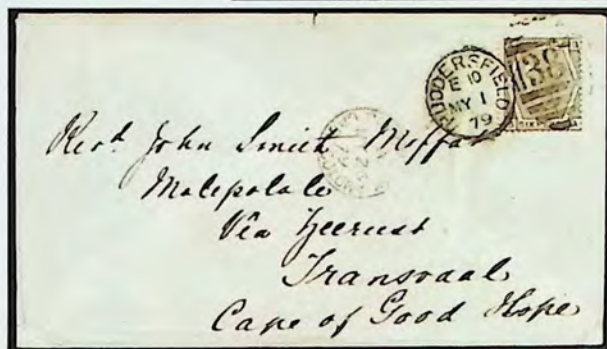 HUDDERSFIELD
E 10
MY 1
79
Revd. John Smith Moffat
Molepolole
Via Zeerust
Transvaal
Cape of Good Hope